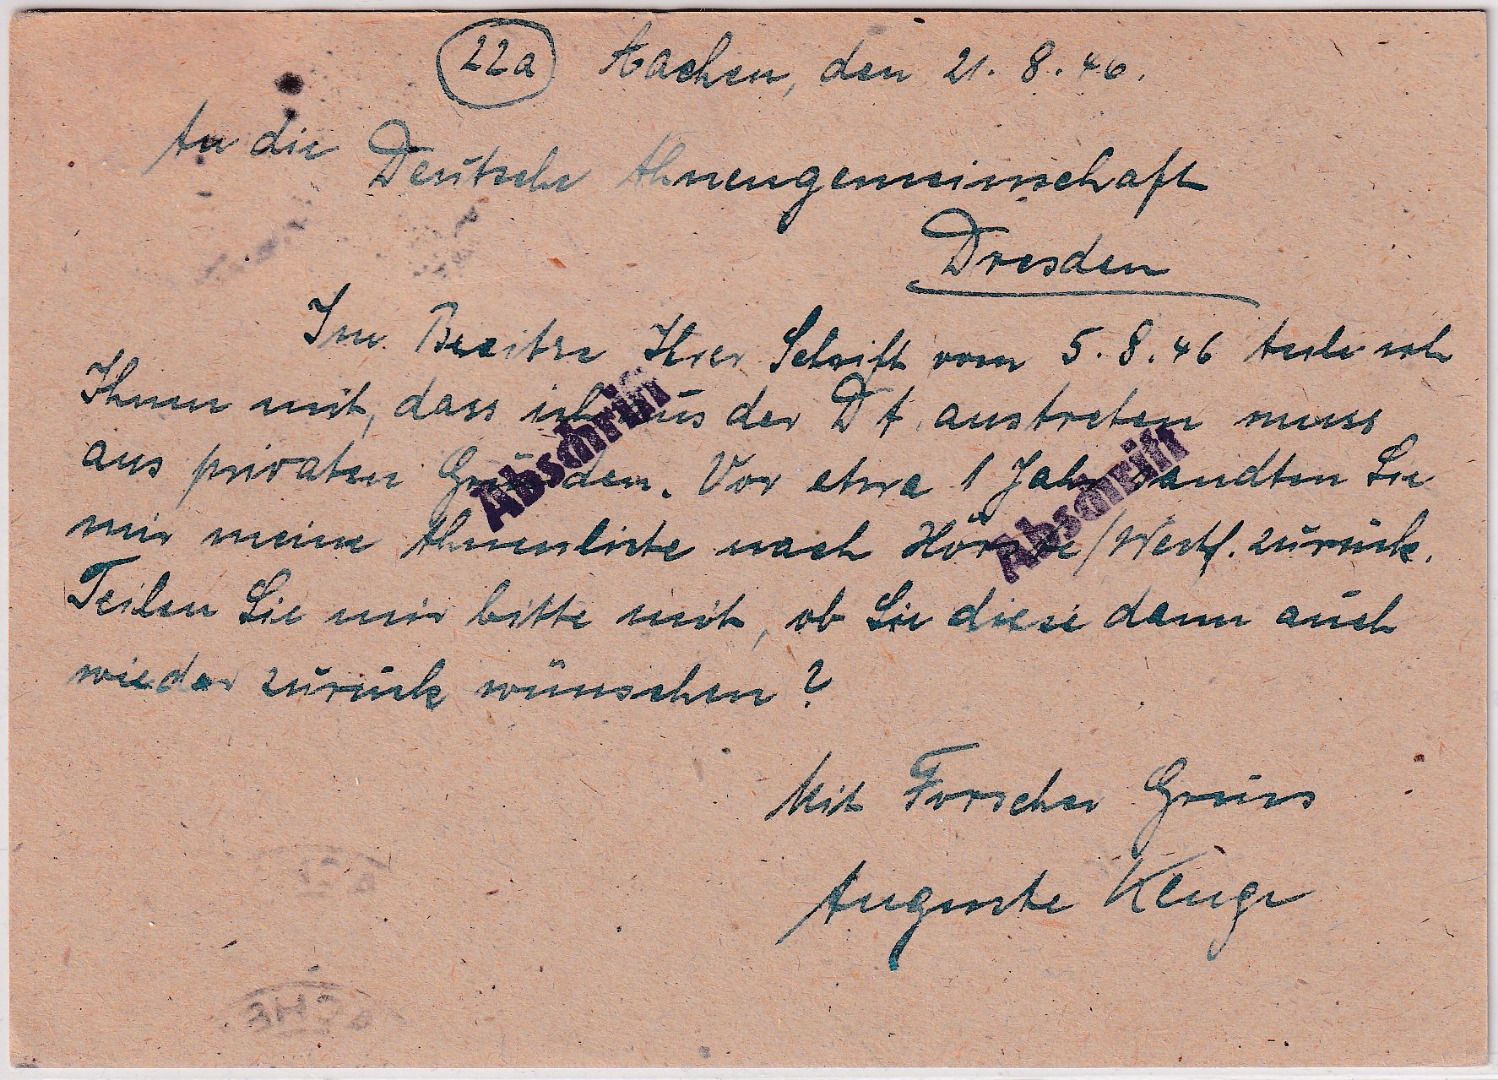 22a Aachen, den 21. 8. 46.
An die
Deutsche Ahnengemeinschaft
Dresden
Im Besitze Ihrer Schrift vom 5. 8. 46 teile ich
Ihnen mit, dass ich aus der D A. austreten muss
aus privaten Gründen. Vor etwa 1 Jahr sandten Sie
mir meine Ahnenliste nach /Westf. zurück.
Teilen Sie mir bitte mit, ob Sie diese dann auch
wieder zurück wünschen?
Mit Forscher Gruss
Auguste
Abschrift
Abschrift